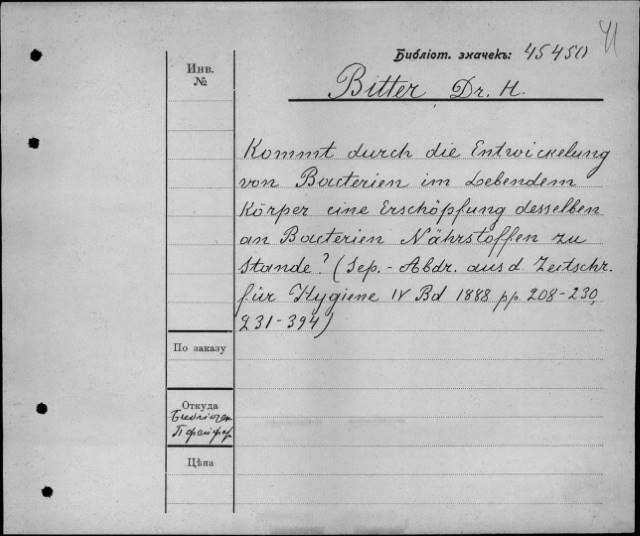 Библіот. значекъ: 45450
Инв.
№
Bitter, Dr. H.
Kommt durch die Entwickelung
von Bacterien im Lebendem
Körper eine Erschöpfung desselben
an Bacterien Nährstoffen zu
Stande? (Sep. - Abdr. aus d Zeitschr.
für Hygiene IV Bd 1888 pp. 208-230,
231-394)
По заказу
Откуда
Цѣна